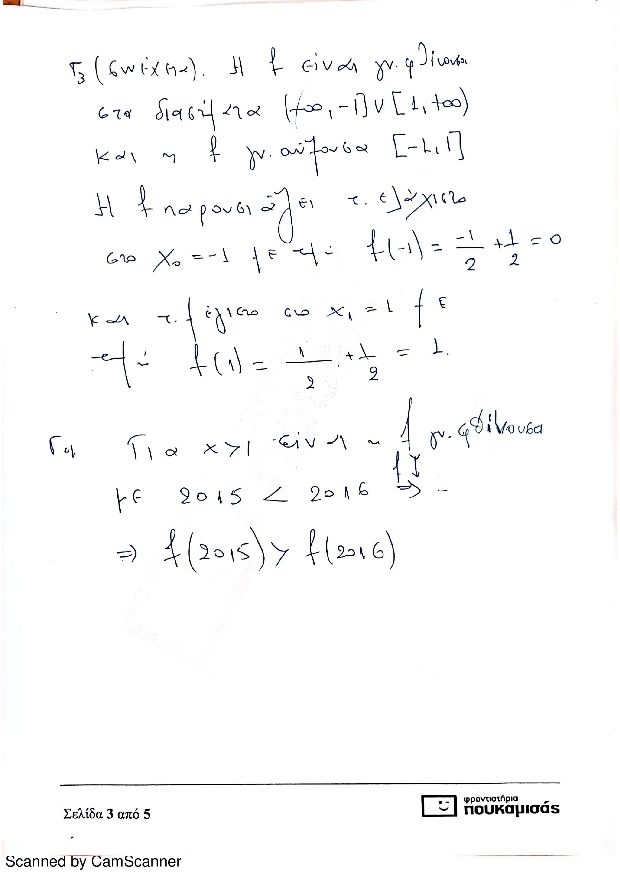 Γ3 (συνέχεια). Η f είναι γν. φθίνουσα
στα διαστήματα (+∞, -1] ∪ [1, +∞)
και η f γν. αύξουσα [-1, 1]
Η f παρουσιάζει τ. ελάχιστο
στο x₀ = -1 με τιμή f(-1) = -1/2 + 1/2 = 0
και τ. μέγιστο στο x₁ = 1 με
τιμή f(1) = 1/2 + 1/2 = 1.
Γ4 Για x>1 είναι η f γν. φθίνουσα
f↓
με 2015 < 2016 ⇒ ..
⇒ f(2015) > f(2016)
Σελίδα 3 από 5
φροντιστήρια
πουκαμισάς
Scanned by CamScanner